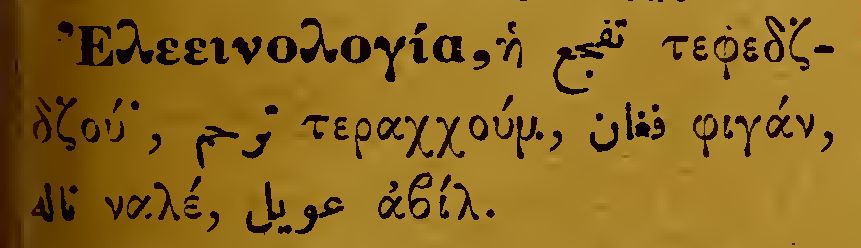 Ἐλεεινολογία, ἡ تفجع τεφεδζ-
δζού', ترحم τεραχχούμ, فغان φιγάν,
ناله ναλέ, عويل ἀβίλ.